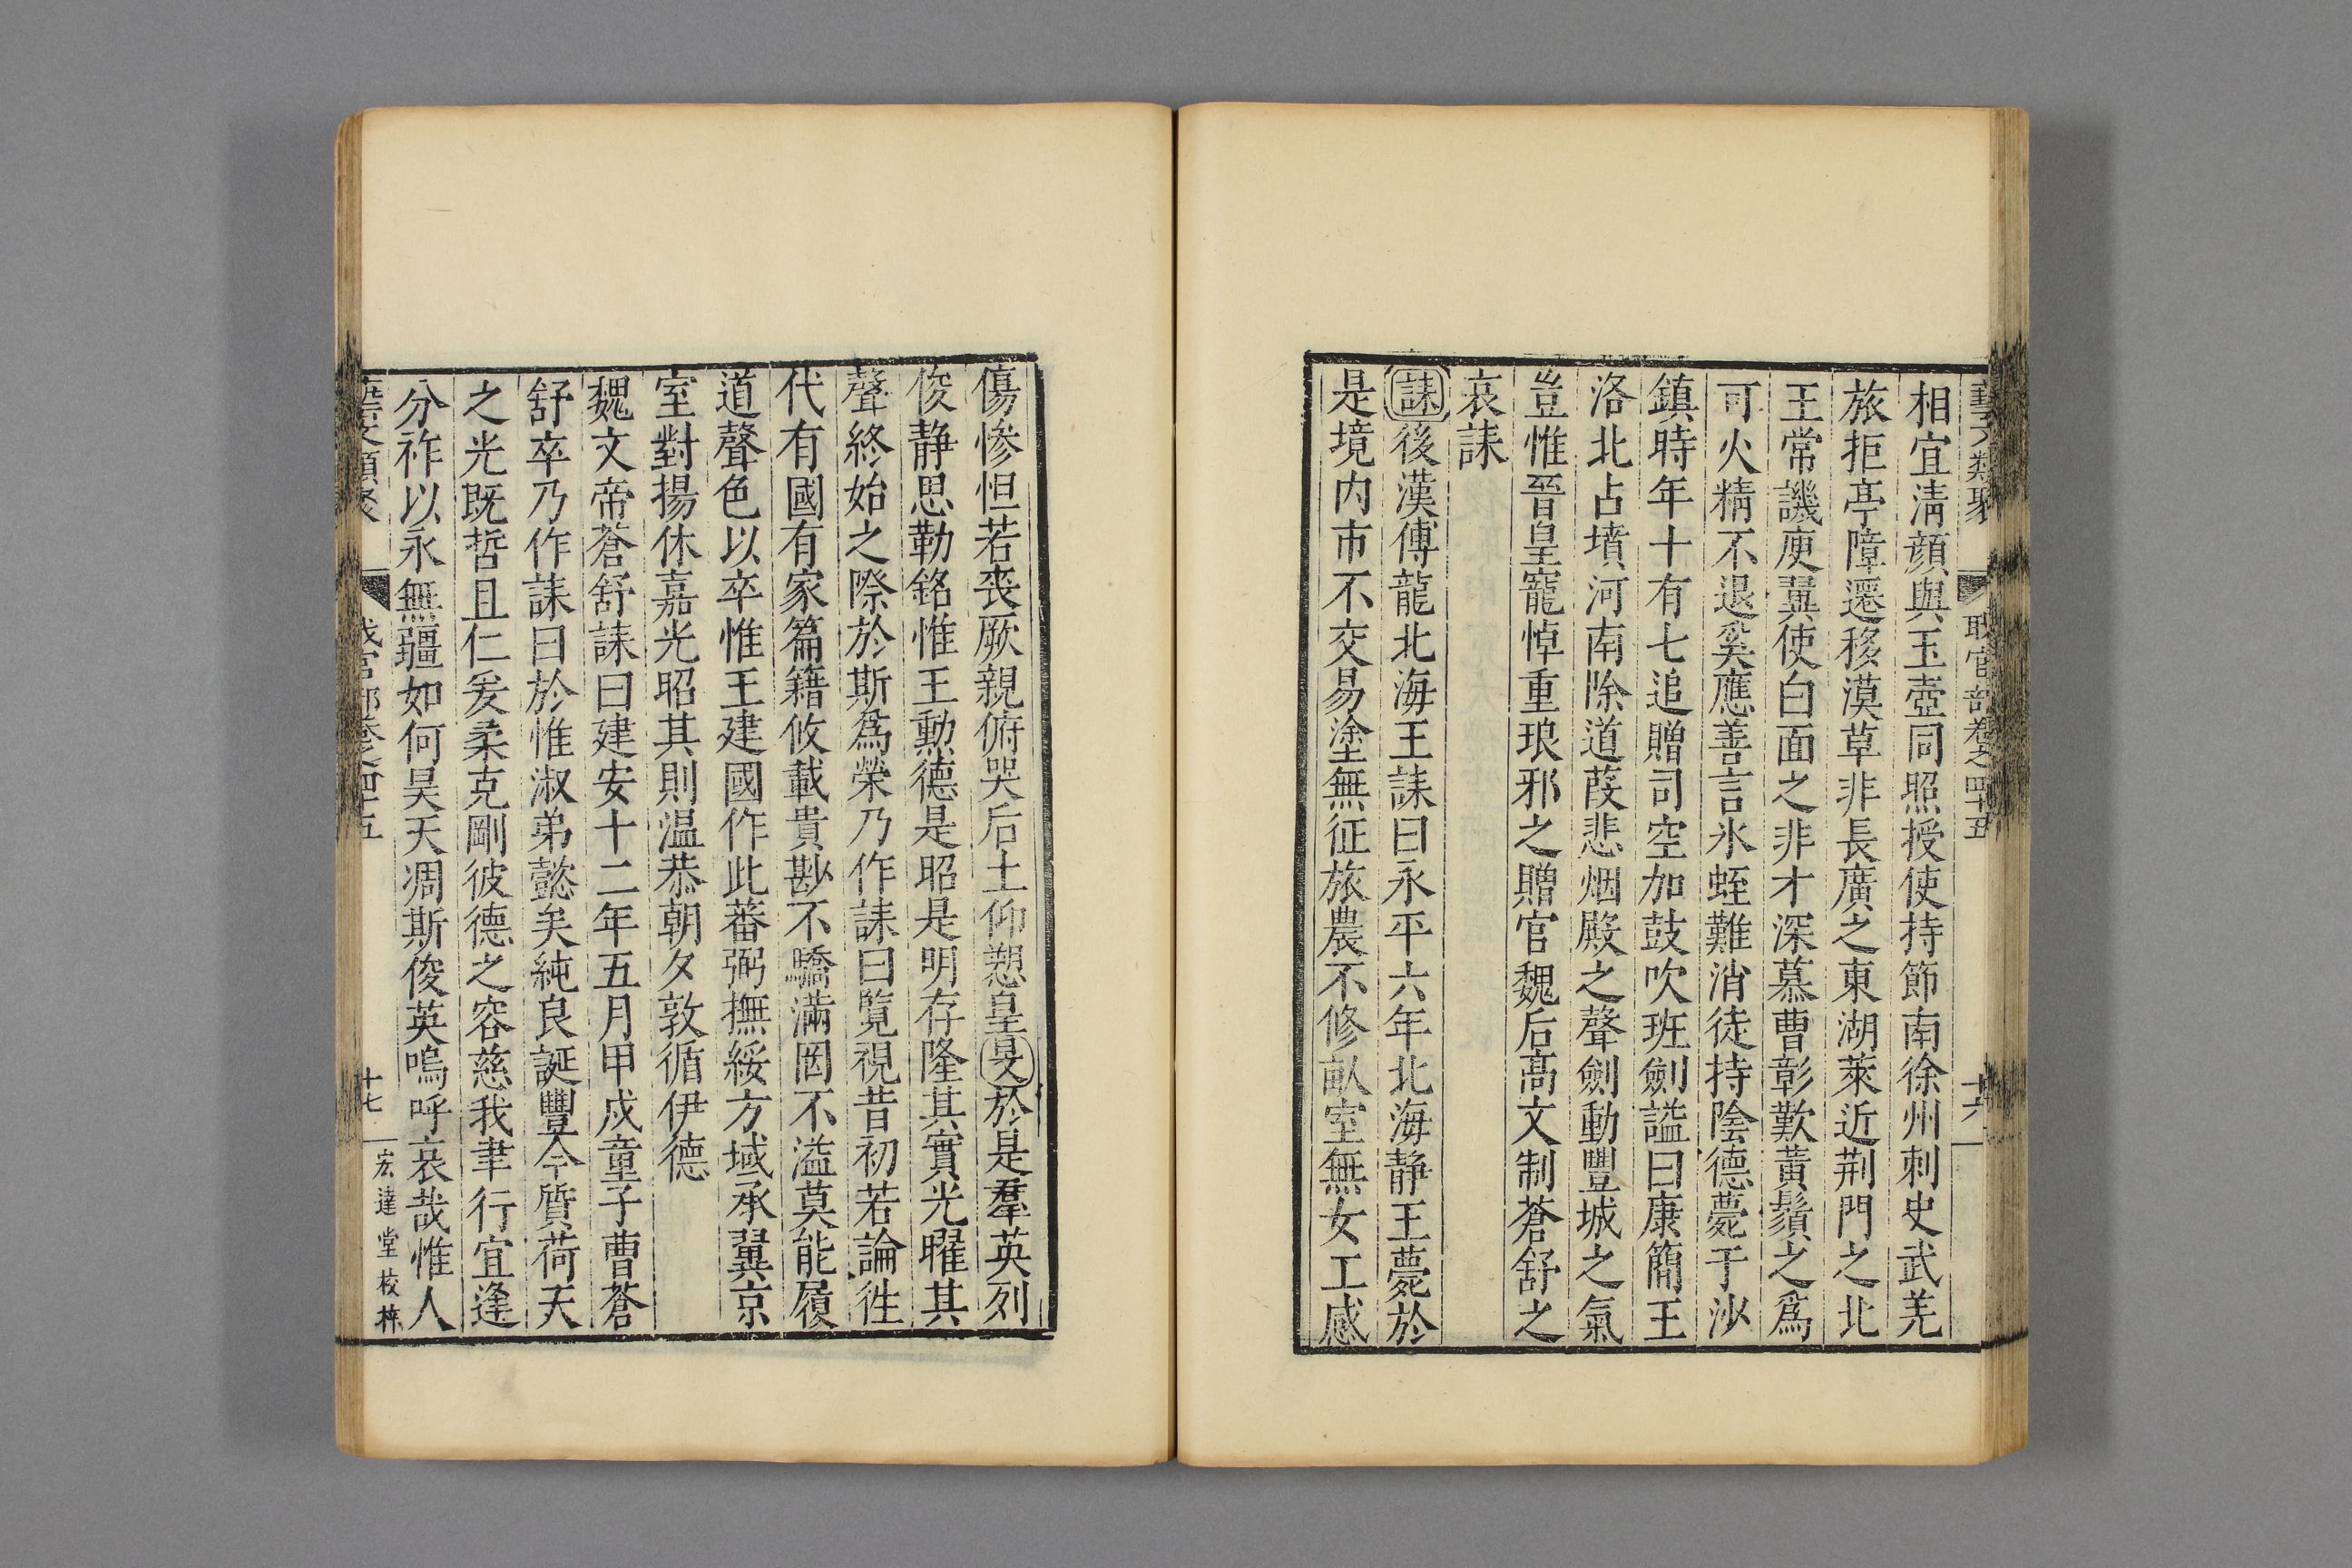 藝文類聚 職官部卷之四十五 十六
相宜淸顔與玉壺同照授使持節南徐州刺史武羌
旅拒亭障遷移漠草非長廣之東湖萊近荆門之北
王常譏庾翼使白面之非才深慕曹彰歎黃鬚之爲
可火精不退奚應善言氷蛭難消徒持陰德薨于沙
鎮時年十有七追贈司空加鼓吹班劍謚曰康簡王
洛北占墳河南除道葭悲烟殿之聲劍動豐城之氣
豈惟晉皇寵悼重琅邪之贈官魏后高文制蒼舒之
哀誄
誄後漢傅龍北海王誄曰永平六年北海静王薨於
是境内市不交易塗無征旅農不修畝室無女工感
傷惨怛若丧厥親俯哭后土仰愬皇旻於是羣英列
俊静思勒銘惟王勳德是昭是明存隆其實光曜其
聲終始之際於斯爲榮乃作誄曰覽視昔初若論徃
代有國有家篇籍攸載貴尠不驕滿罔不溢莫能履
道聲色以卒惟王建國作此蕃弼撫綏方域承翼京
室對揚休嘉光昭其則温恭朝夕敦循伊德
魏文帝蒼舒誄曰建安十二年五月甲戍童子曹蒼
舒卒乃作誄曰於惟淑弟懿矣純良誕豐令質荷天
之光既哲且仁爰柔克剛彼德之容慈我聿行宜逢
分祚以永無疆如何昊天凋斯俊英嗚呼哀哉惟人
藝文類聚 職官部卷之四十五 十七 宏達堂校梓